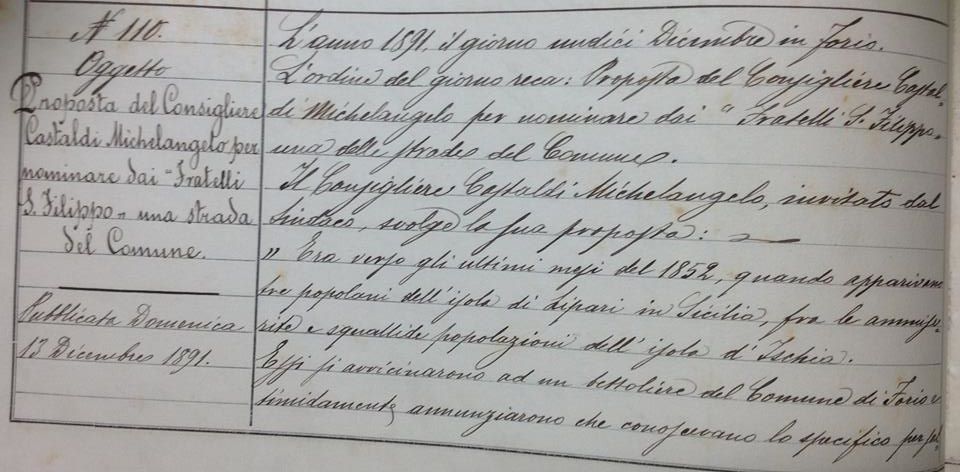 N° 110.
Oggetto
Proposta del Consigliere
Castaldi Michelangelo per
nominare dai "Fratelli
S. Filippo" una strada
del Comune.
Pubblicata Domenica
13 Dicembre 1891.
L'anno 1891. il giorno undici Dicembre in Forio.
L'ordine del giorno reca: Proposta del Consigliere Castal-
di Michelangelo per nominare dai "Fratelli S. Filippo"
una delle strade del Comune.
Il Consigliere Castaldi Michelangelo, invitato dal
Sindaco, svolge la sua proposta: —
" Era verso gli ultimi mesi del 1852, quando apparivano
tre popolani dell'isola di Lipari in Sicilia, fra le ammise-
rite e squallide popolazioni dell'isola d'Ischia.
Essi si avvicinarono ad un bettoliere del Comune di Forio e
timidamente annunziarono che conoscevano lo specifico per gel